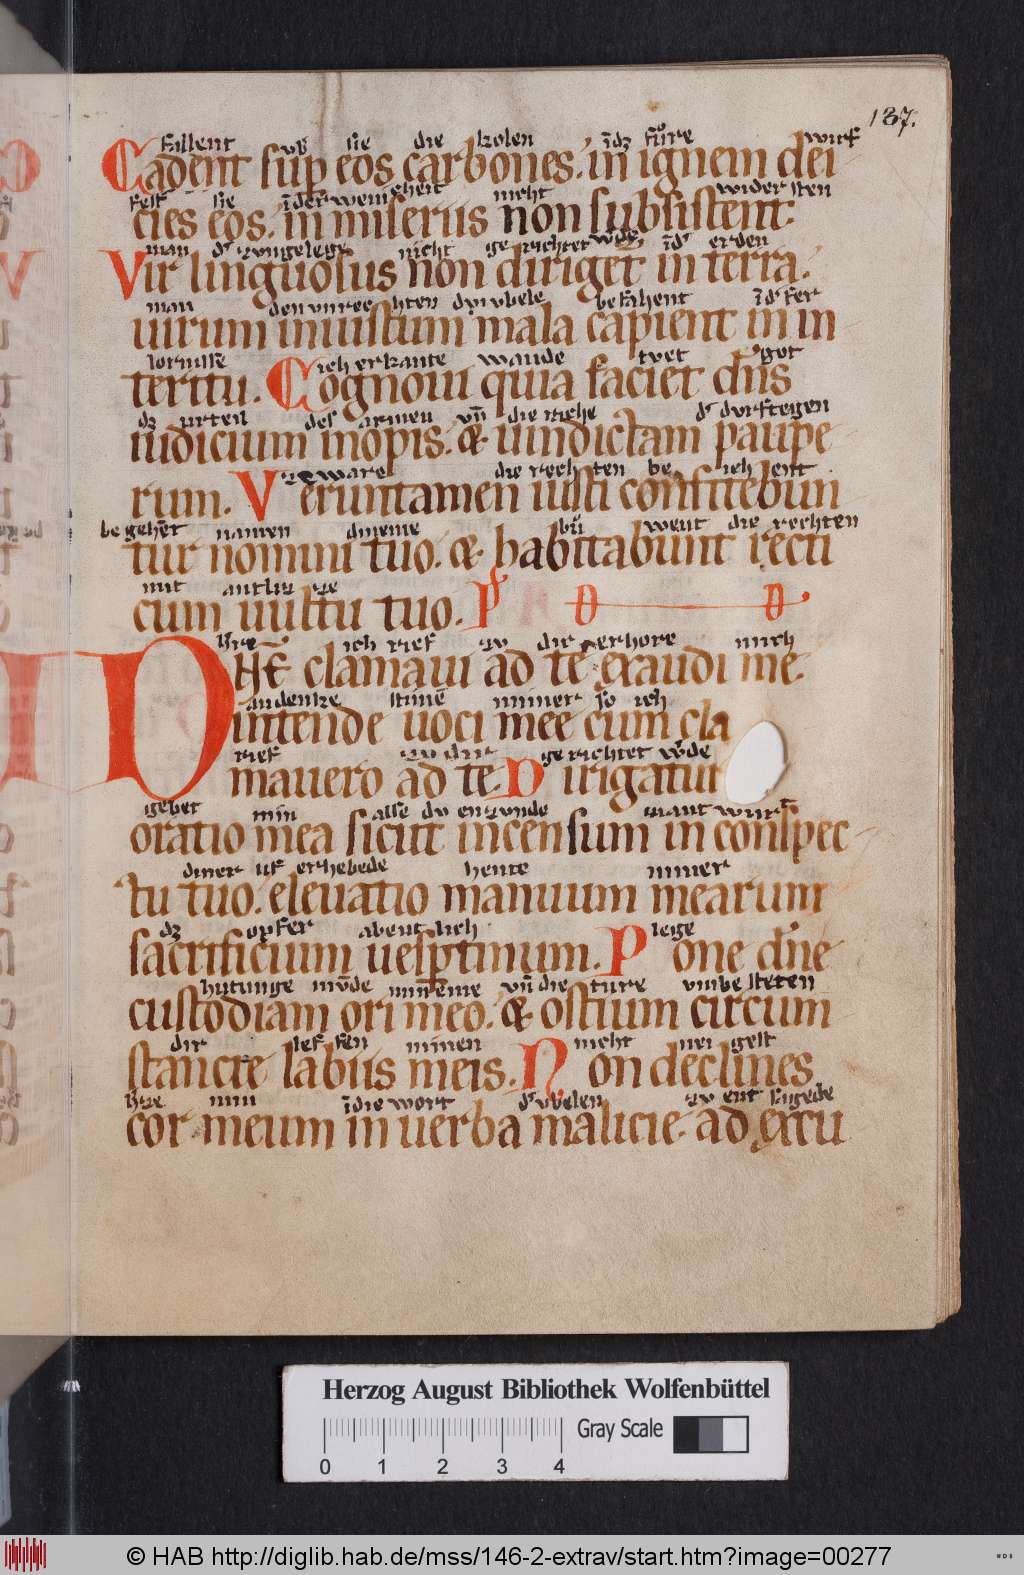 137.
fallent vb sie die kolen in dz fure wirf
Cadent sup eos carbones. in ignem dei
fest sie in der wenicheit nicht wider sten
cies eos. in miseriis non subsistent.
man d zungelege nicht ge richtet wde in d erden
Vir linguosus non diriget in terra.
man den unrechten dui vbele be fahent in d fer
uirum iniustum mala capient in in
lornisse
teritu. Cognoui quia faciet dns
ich erkante wande tvet got
dz urten des armen vn die riche d dvrftegen
iudicium inopis. & uindictam paupe
zware die rechten be ich ent
rum. Veruntamen iusti confitebun
be gehet namen dineme bu went die rechten
tur nomini tuo. & habitabunt recti
mit antluz ze
cum uultu tuo. P D D
hre ich rief zv dir erhore mich
DNE clamaui ad te exaudi me
andenke stine miner so ich
intende uoci mee cum cla
rief zv dir gerichtet wde
mauero ad te. Dirigatur
gebet min alse dv enzvnde
oratio mea sicut incensum in conspec
diner uf erhebede hente miner
tu tuo. eleuatio manuum mearum
dz opfer abent lich lege
sacrificium uesptinum. Pone dne
hutunge mvde mineme vn die ture vmbe steten
custodiam ori meo. & ostium circum
dir lef fen minen nicht nei gest
stancie labiis meis. Non declines
hze min in die wort d vbelen zv ent
cor meum in uerba malicie. ad excu
Herzog August Bibliothek Wolfenbüttel
Gray Scale
0 1 2 3 4
© HAB http://diglib.hab.de/mss/146-2-extrav/start.htm?image=00277